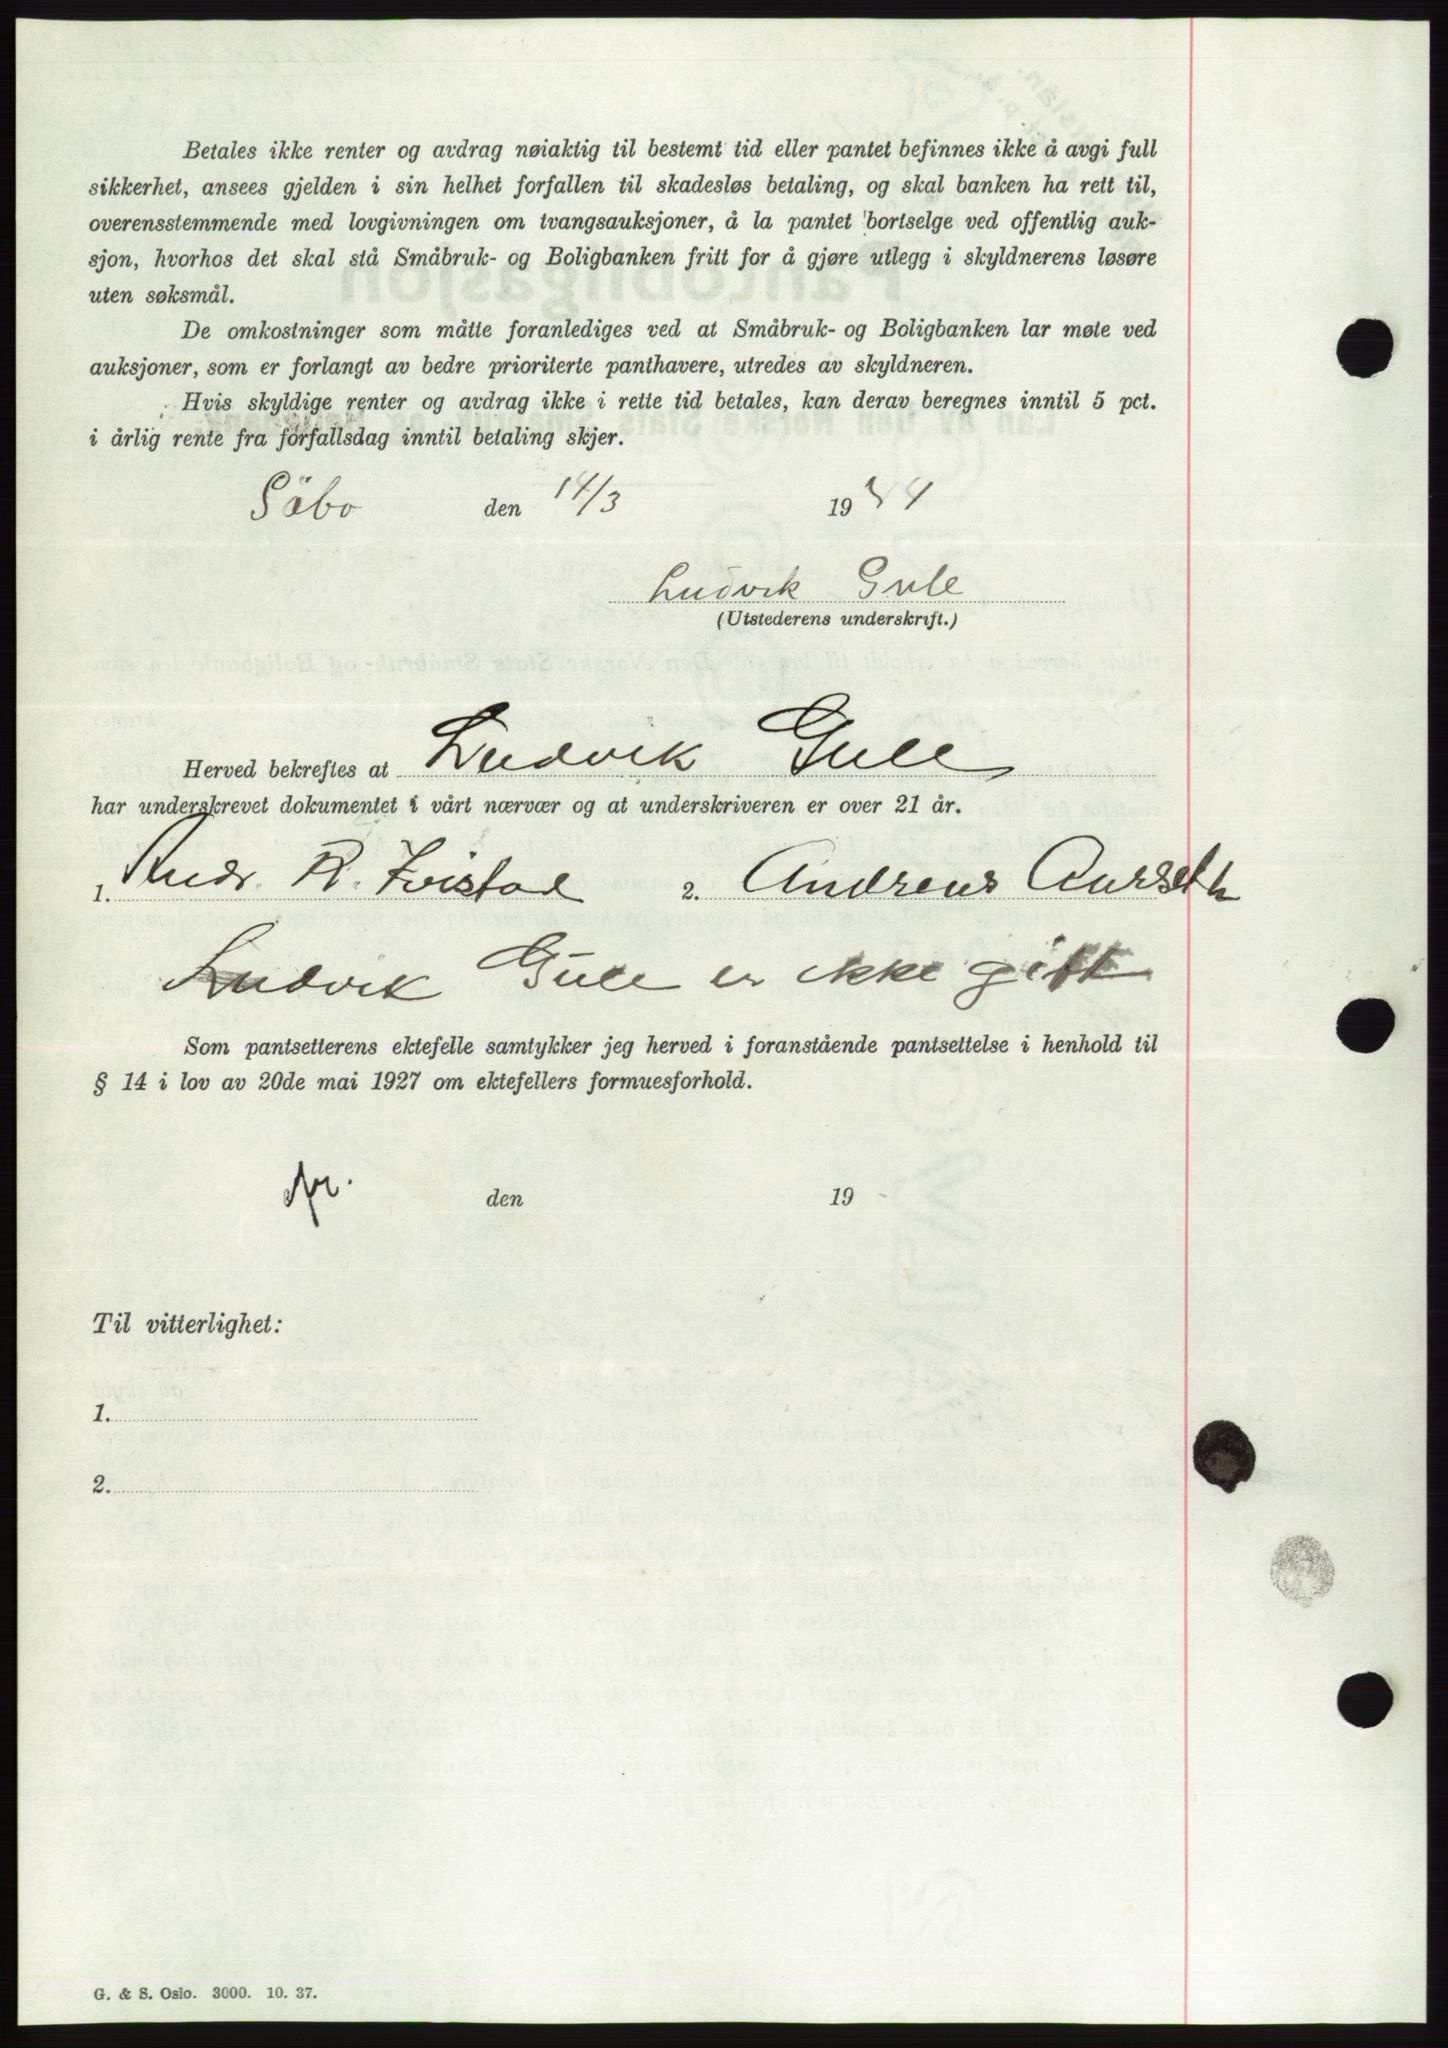 Betales ikke renter og avdrag nøiaktig til bestemt tid eller pantet befinnes ikke å avgi full
sikkerhet, ansees gjelden i sin helhet forfallen til skadesløs betaling, og skal banken ha rett til,
overensstemmende med lovgivningen om tvangsauksjoner, å la pantet bortselge ved offentlig auk-
sjon, hvorhos det skal stå Småbruk- og Boligbanken fritt for å gjøre utlegg i skyldnerens løsøre
uten søksmål.
De omkostninger som måtte foranlediges ved at Småbruk- og Boligbanken lar møte ved
auksjoner, som er forlangt av bedre prioriterte panthavere, utredes av skyldneren.
Hvis skyldige renter og avdrag ikke i rette tid betales, kan derav beregnes inntil 5 pct.
i årlig rente fra forfallsdag inntil betaling skjer.
Säbo den 14/3 19
Ludvik Gule
(Utstederens underskrift.)
Herved bekreftes at Ludvik Gule
har underskrevet dokumentet i vårt nærvær og at underskriveren er over 21 år.
1. Andr. R. 2. Andreas Aurseth
Ludvik Gule er ikke gift
Som pantsetterens ektefelle samtykker jeg herved i foranstående pantsettelse i henhold til
§ 14 i lov av 20de mai 1927 om ektefellers formuesforhold.
den 19
Til vitterlighet:
1.
2.
G. & S. Oslo. 3000. 10. 37.